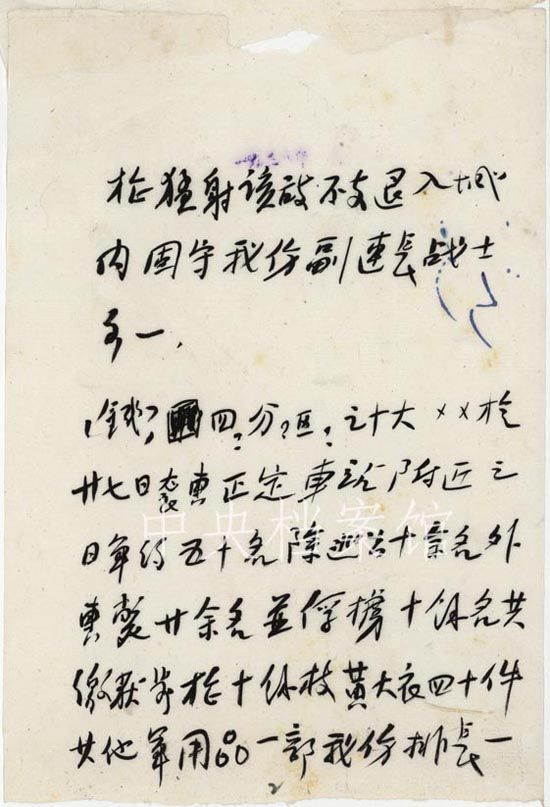 枪猛射该敌不支退入城
内固守我伤副连长战士
各一.
四?分?区?之十大××於
廿七日袭 正定車站附近之
日軍约五十名除 十余名外
毙廿余名並俘掳十余名共
缴获步枪十余枝黄大衣四十件
其他军用品一部我伤排長一
中央档案馆
2